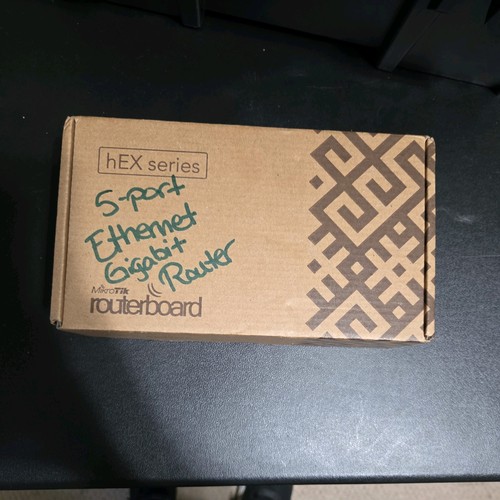 hEX series
5-port
Ethernet
Gigabit Router
MikroTik
routerboard